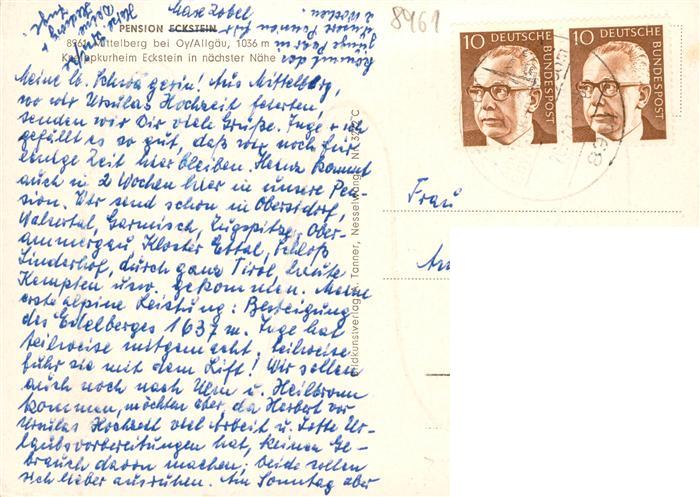 PENSION ECKSTEIN
8961 Mittelberg bei Oy/Allgäu, 1036 m
Kneippkurheim Eckstein in nächster Nähe
Meine lb. Schwägerin! Aus Mittelberg,
wo wir Ursulas Hochzeit feierten,
senden wir Dir viele Grüße. Inge + ich
gefällt es so gut, daß wir noch für
einige Zeit hier bleiben. Heinz kommt
auch in 2 Wochen hier in unsere Pen-
sion. Wir sind schon in Oberstdorf,
Walsertal, Garmisch, Zugspitze, Ober-
ammergau Kloster Ettal, Schloß
Linderhof, durch ganz Tirol, heute
Kempten usw. gekommen. Meine
erste alpine Leistung: Besteigung
des Edelberges 1637 m. Inge hat
teilweise mitgemacht, teilweise
fuhr sie mit dem Lift! Wir sollen
auch noch nach Ulm u. Heilbronn
kommen, möchten aber, da Herbert vor
Ursulas Hochzeit viel Arbeit u. Lotte Ur-
laubsvorbereitungen hat, keinen Ge-
brauch davon machen; beide sollen
sich lieber ausruhen. Am Sonntag aber
kommt das
junge Paar in
unsere Pension für
2 Wochen
Max Zobel
Herzlichst
Deine
Inge
Feldkunstverlag A. Tanner, Nesselwang Nr. 3272 C
8961
10 DEUTSCHE BUNDESPOST
10 DEUTSCHE BUNDESPOST
Frau